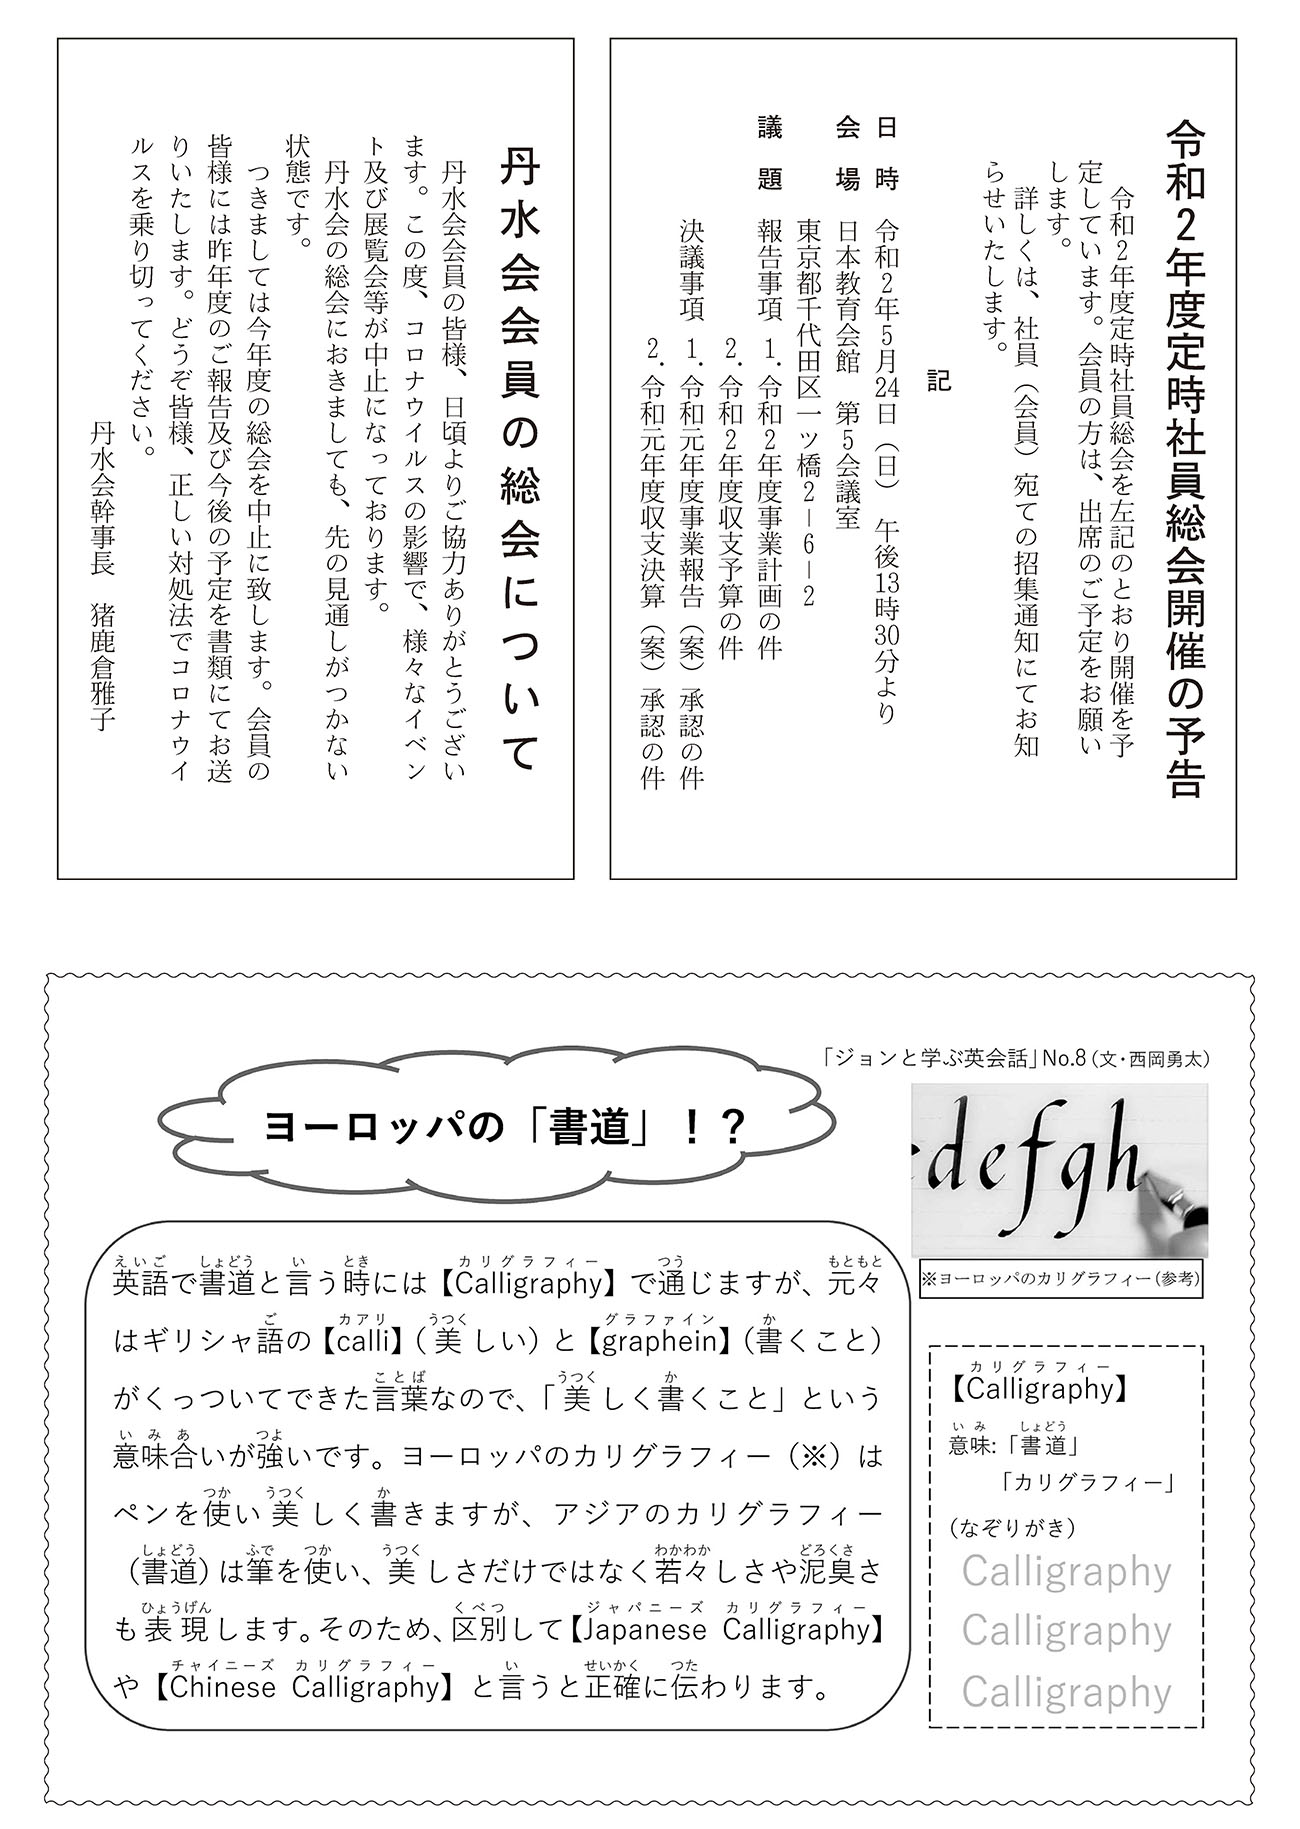 令和2年度定時社員総会開催の予告
令和2年度定時社員総会を左記のとおり開催を予
定しています。会員の方は、出席のご予定をお願い
します。
詳しくは、社員（会員）宛ての招集通知にてお知
らせいたします。
記
日　時　令和2年5月24日（日）　午後13時30分より
会　場　日本教育会館　第5会議室
東京都千代田区一ッ橋2－6－2
議　題　報告事項　1. 令和2年度事業計画の件
2. 令和2年度収支予算の件
決議事項　1. 令和元年度事業報告（案）承認の件
2. 令和元年度収支決算（案）承認の件
丹水会会員の総会について
丹水会会員の皆様、日頃よりご協力ありがとうござい
ます。この度、コロナウイルスの影響で、様々なイベン
ト及び展覧会等が中止になっております。
丹水会の総会におきましても、先の見通しがつかない
状態です。
つきましては今年度の総会を中止に致します。会員の
皆様には昨年度のご報告及び今後の予定を書類にてお送
りいたします。どうぞ皆様、正しい対処法でコロナウイ
ルスを乗り切ってください。
丹水会幹事長　猪鹿倉雅子
「ジョンと学ぶ英会話」No.8（文・西岡勇太）
ヨーロッパの「書道」！？
defgh
※ヨーロッパのカリグラフィー（参考）
えいご しょどう い とき カリグラフィー つう もともと
英語で書道と言う時には【Calligraphy】で通じますが、元々
ご カアリ うつく グラファイン か
はギリシャ語の【calli】（美しい）と【graphein】（書くこと）
ことば うつく か
がくっついてできた言葉なので、「美しく書くこと」という
いみあ つよ
意味合いが強いです。ヨーロッパのカリグラフィー（※）は
つか うつく か
ペンを使い美しく書きますが、アジアのカリグラフィー
しょどう ふで つか うつく わかわか どろくさ
（書道）は筆を使い、美しさだけではなく若々しさや泥臭さ
ひょうげん くべつ ジャパニーズ カリグラフィー
も表現します。そのため、区別して【Japanese Calligraphy】
チャイニーズ カリグラフィー い せいかく つた
や【Chinese Calligraphy】と言うと正確に伝わります。
カリグラフィー
【Calligraphy】
いみ しょどう
意味:「書道」
「カリグラフィー」
（なぞりがき）
Calligraphy
Calligraphy
Calligraphy